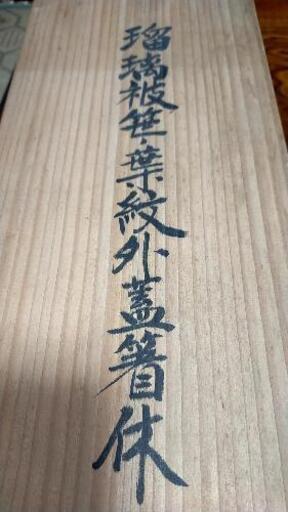 瑠璃被笹ノ葉紋外蓋箸休